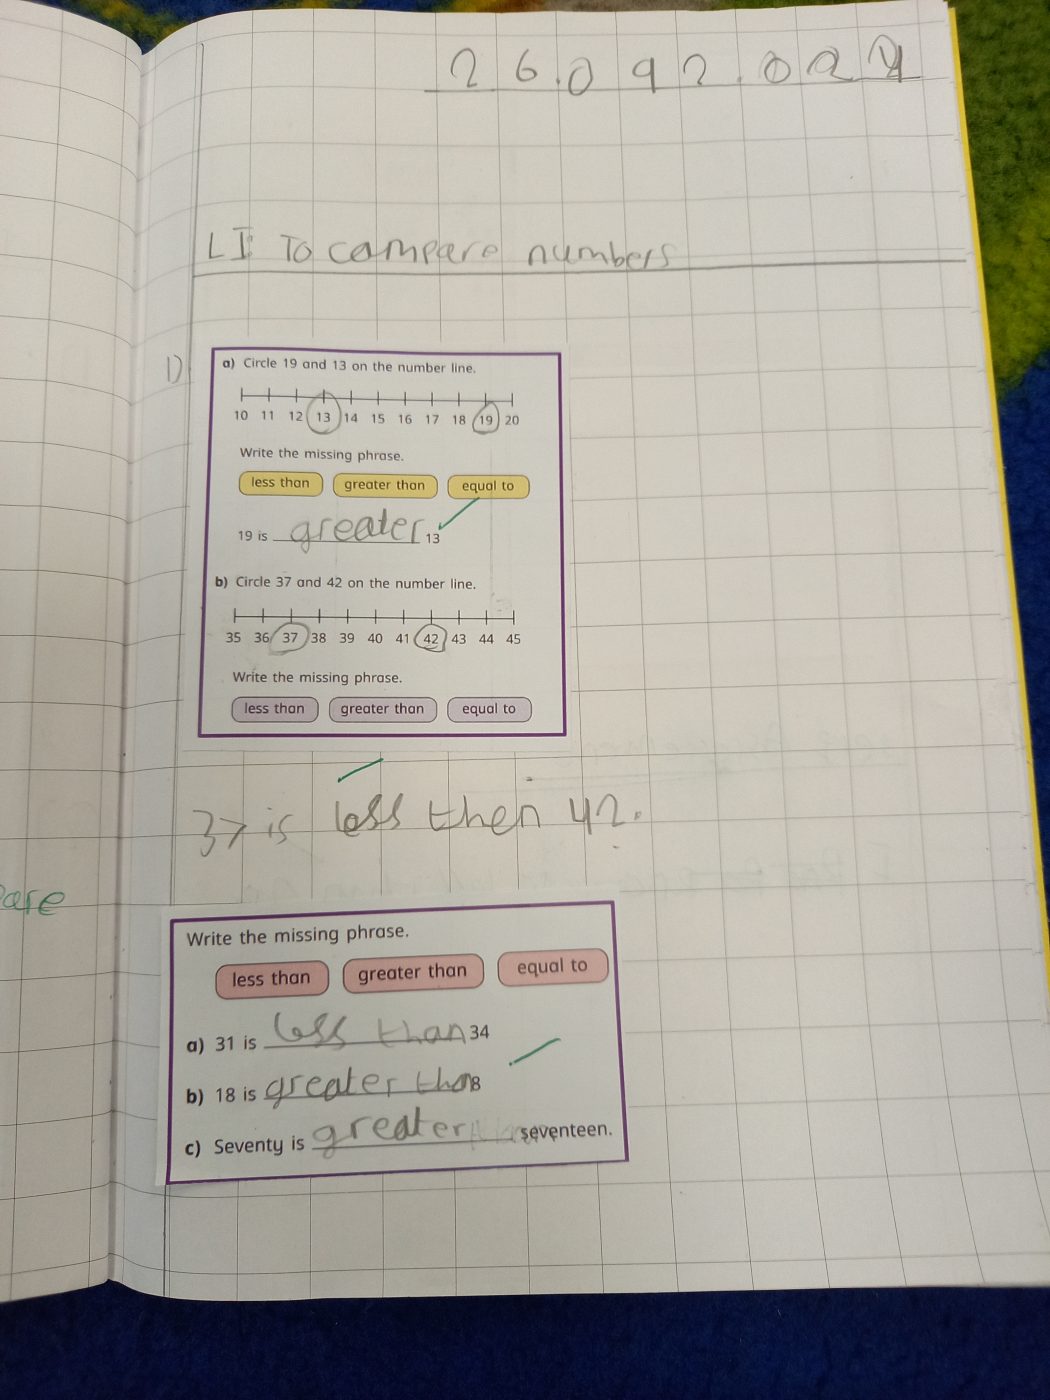 26.092.024
LI: To compare numbers
1)
a) Circle 19 and 13 on the number line.
10 11 12 13 14 15 16 17 18 19 20
Write the missing phrase.
less than greater than equal to
19 is greater 13
b) Circle 37 and 42 on the number line.
35 36 37 38 39 40 41 42 43 44 45
Write the missing phrase.
less than greater than equal to
37 is less then 42.
are
Write the missing phrase.
less than greater than equal to
a) 31 is less than 34
b) 18 is greater tha 8
c) Seventy is greater seventeen.